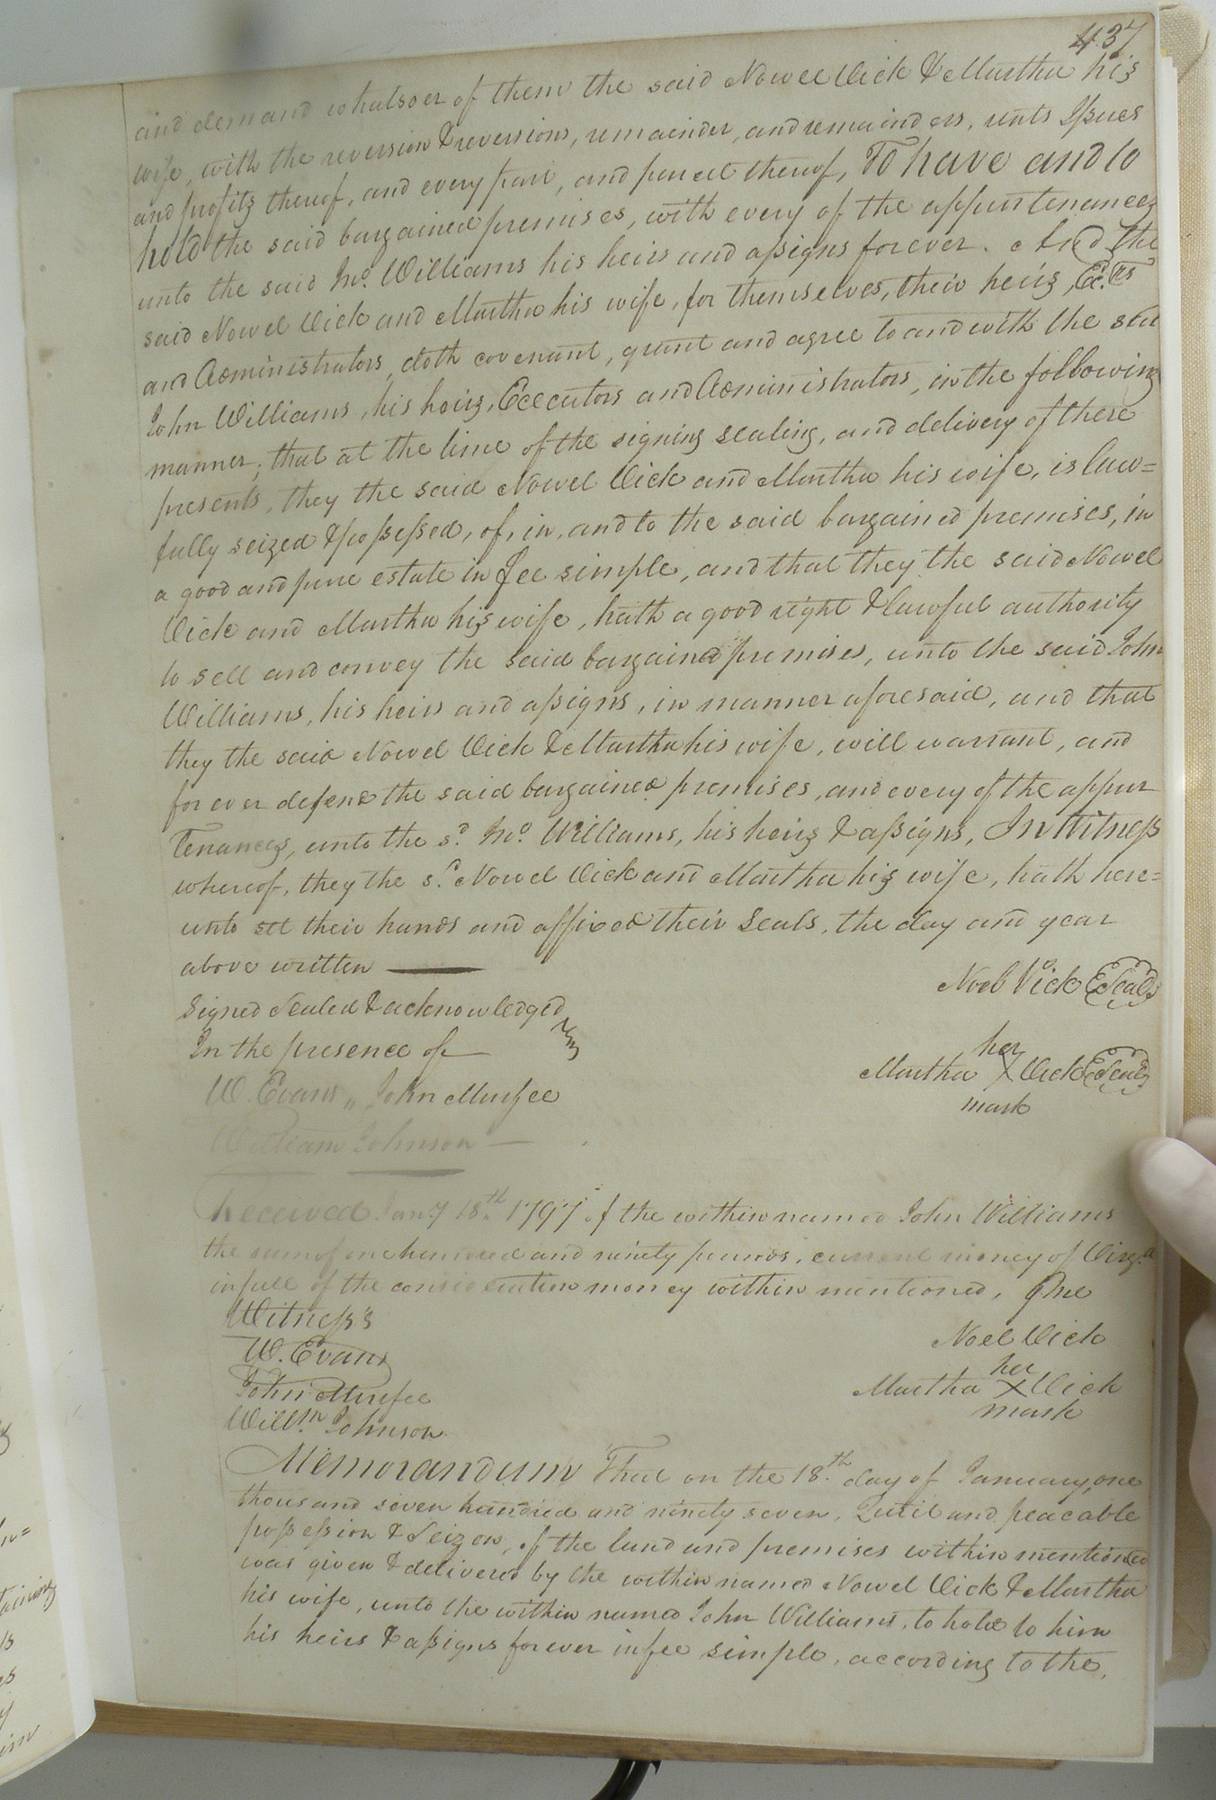 437
and demand whatsoer of them the said Nowel Vick & Martha his
wife, with the reversion & reversions, remainder, and remainders, rents Issues
and profits thereof, and every part, and parcel thereof, To have and to
hold the said bargained premises, with every of the appurtenances
unto the said Jno. Williams his heirs and assigns forever. And the
said Nowel Vick and Martha his wife, for themselves, their heirs, Ex.rs
and Administrators, doth covenant, grant and agree to and with the said
John Williams, his heirs, Executors and Administrators, in the following
manner; that at the time of the signing sealing, and delivery of there
presents, they the said Nowel Vick and Martha his wife, is law=
fully seized & possessed, of, in, and to the said bargained premises, in
a good and pure estate in fee simple, and that they the said Nowel
Vick and Martha his wife, hath a good right & lawful authority
to sell and convey the said bargained premises, unto the said John
Williams, his heirs and assigns, in manner aforesaid, and that
they the said Nowel Vick & Martha his wife, will warrant, and
for ever defend the said bargained premises, and every of the appur
tenances, unto the sd. Jno. Williams, his heirs & assigns, In Witness
whereof, they the sd. Nowel Vick and Martha his wife, hath here=
unto set their hands and affixed their Seals, the day and year
above written
Noel Vick Seal
Signed Sealed & acknowledged
In the presence of
W. Evans, John Murfee
William Johnson
her
Martha X Vick Seal
mark
Received Jan.y 18.th 1797 of the within named John Williams
the sum of one hundred and ninety pounds, current money of Virg.a
in full of the consideration money within mentioned,
Witness's
W. Evans
John Murfee
Will.m Johnson
Noel Vick
her
Martha X Vick
mark
Memorandum That on the 18.th day of January, one
thousand seven hundred and ninety seven, Quiet and peacable
possession & Seizen, of the land and premises within mentioned
was given & delivered by the within named Nowel Vick & Martha
his wife, unto the within named John Williams, to hold to him
his heirs & assigns forever in fee simple, according to the,